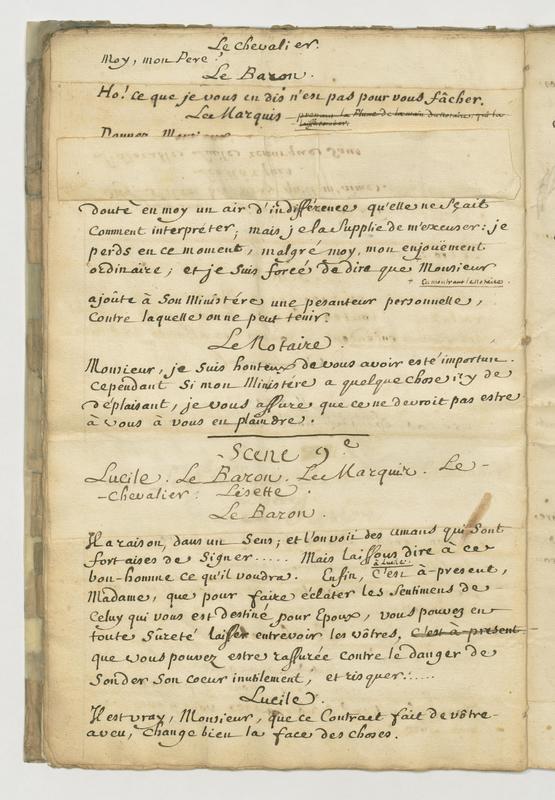 Le Chevalier.
Moy, mon Pere!
Le Baron.
Ho! ce que je vous en dis n'est pas pour vous fâcher.
Le Marquis prenant la Plume de la main du Notaire, qui la
Donnez,
doute en moy un air d'indifférence qu'elle ne sçait
Comment interpréter; mais je la Supplie de m'excuser: je
perds en ce moment, malgré moy, mon enjoüement
ordinaire; et je Suis forcé de dire que Monsieur
En montrant le Notaire.
ajoûte à Son Ministére une pesanteur personnelle,
Contre laquelle on ne peut tenir.
Le Notaire.
Monsieur, je suis honteux de vous avoir esté importun.
Cependant Si mon Ministére a quelque chose icy de
déplaisant, je vous assure que ce ne devroit pas estre
à vous à vous en plaindre.
Scene 9e
Lucile. Le Baron. Le Marquis. Le-
-Chevalier. Lisette.
Le Baron.
Il a raison, dans un Sens; et l'on voit des amans qui Sont
fort aises de Signer...... Mais laissons dire à ce
à Lucile.
bon-homme ce qu'il voudra. Enfin, C'est à-present,
Madame, que pour faire éclater les Sentimens de
Celuy qui vous est destiné pour Epoux, vous pouvez en
toute Sureté laisser entrevoir les vôtres, c'est à-present
que vous pouvez estre rassurée contre le danger de
Sonder Son coeur inutilement, et risquer......
Lucile.
Il est vray, Monsieur, que ce Contract fait de vôtre-
aveu, Change bien la face des choses.